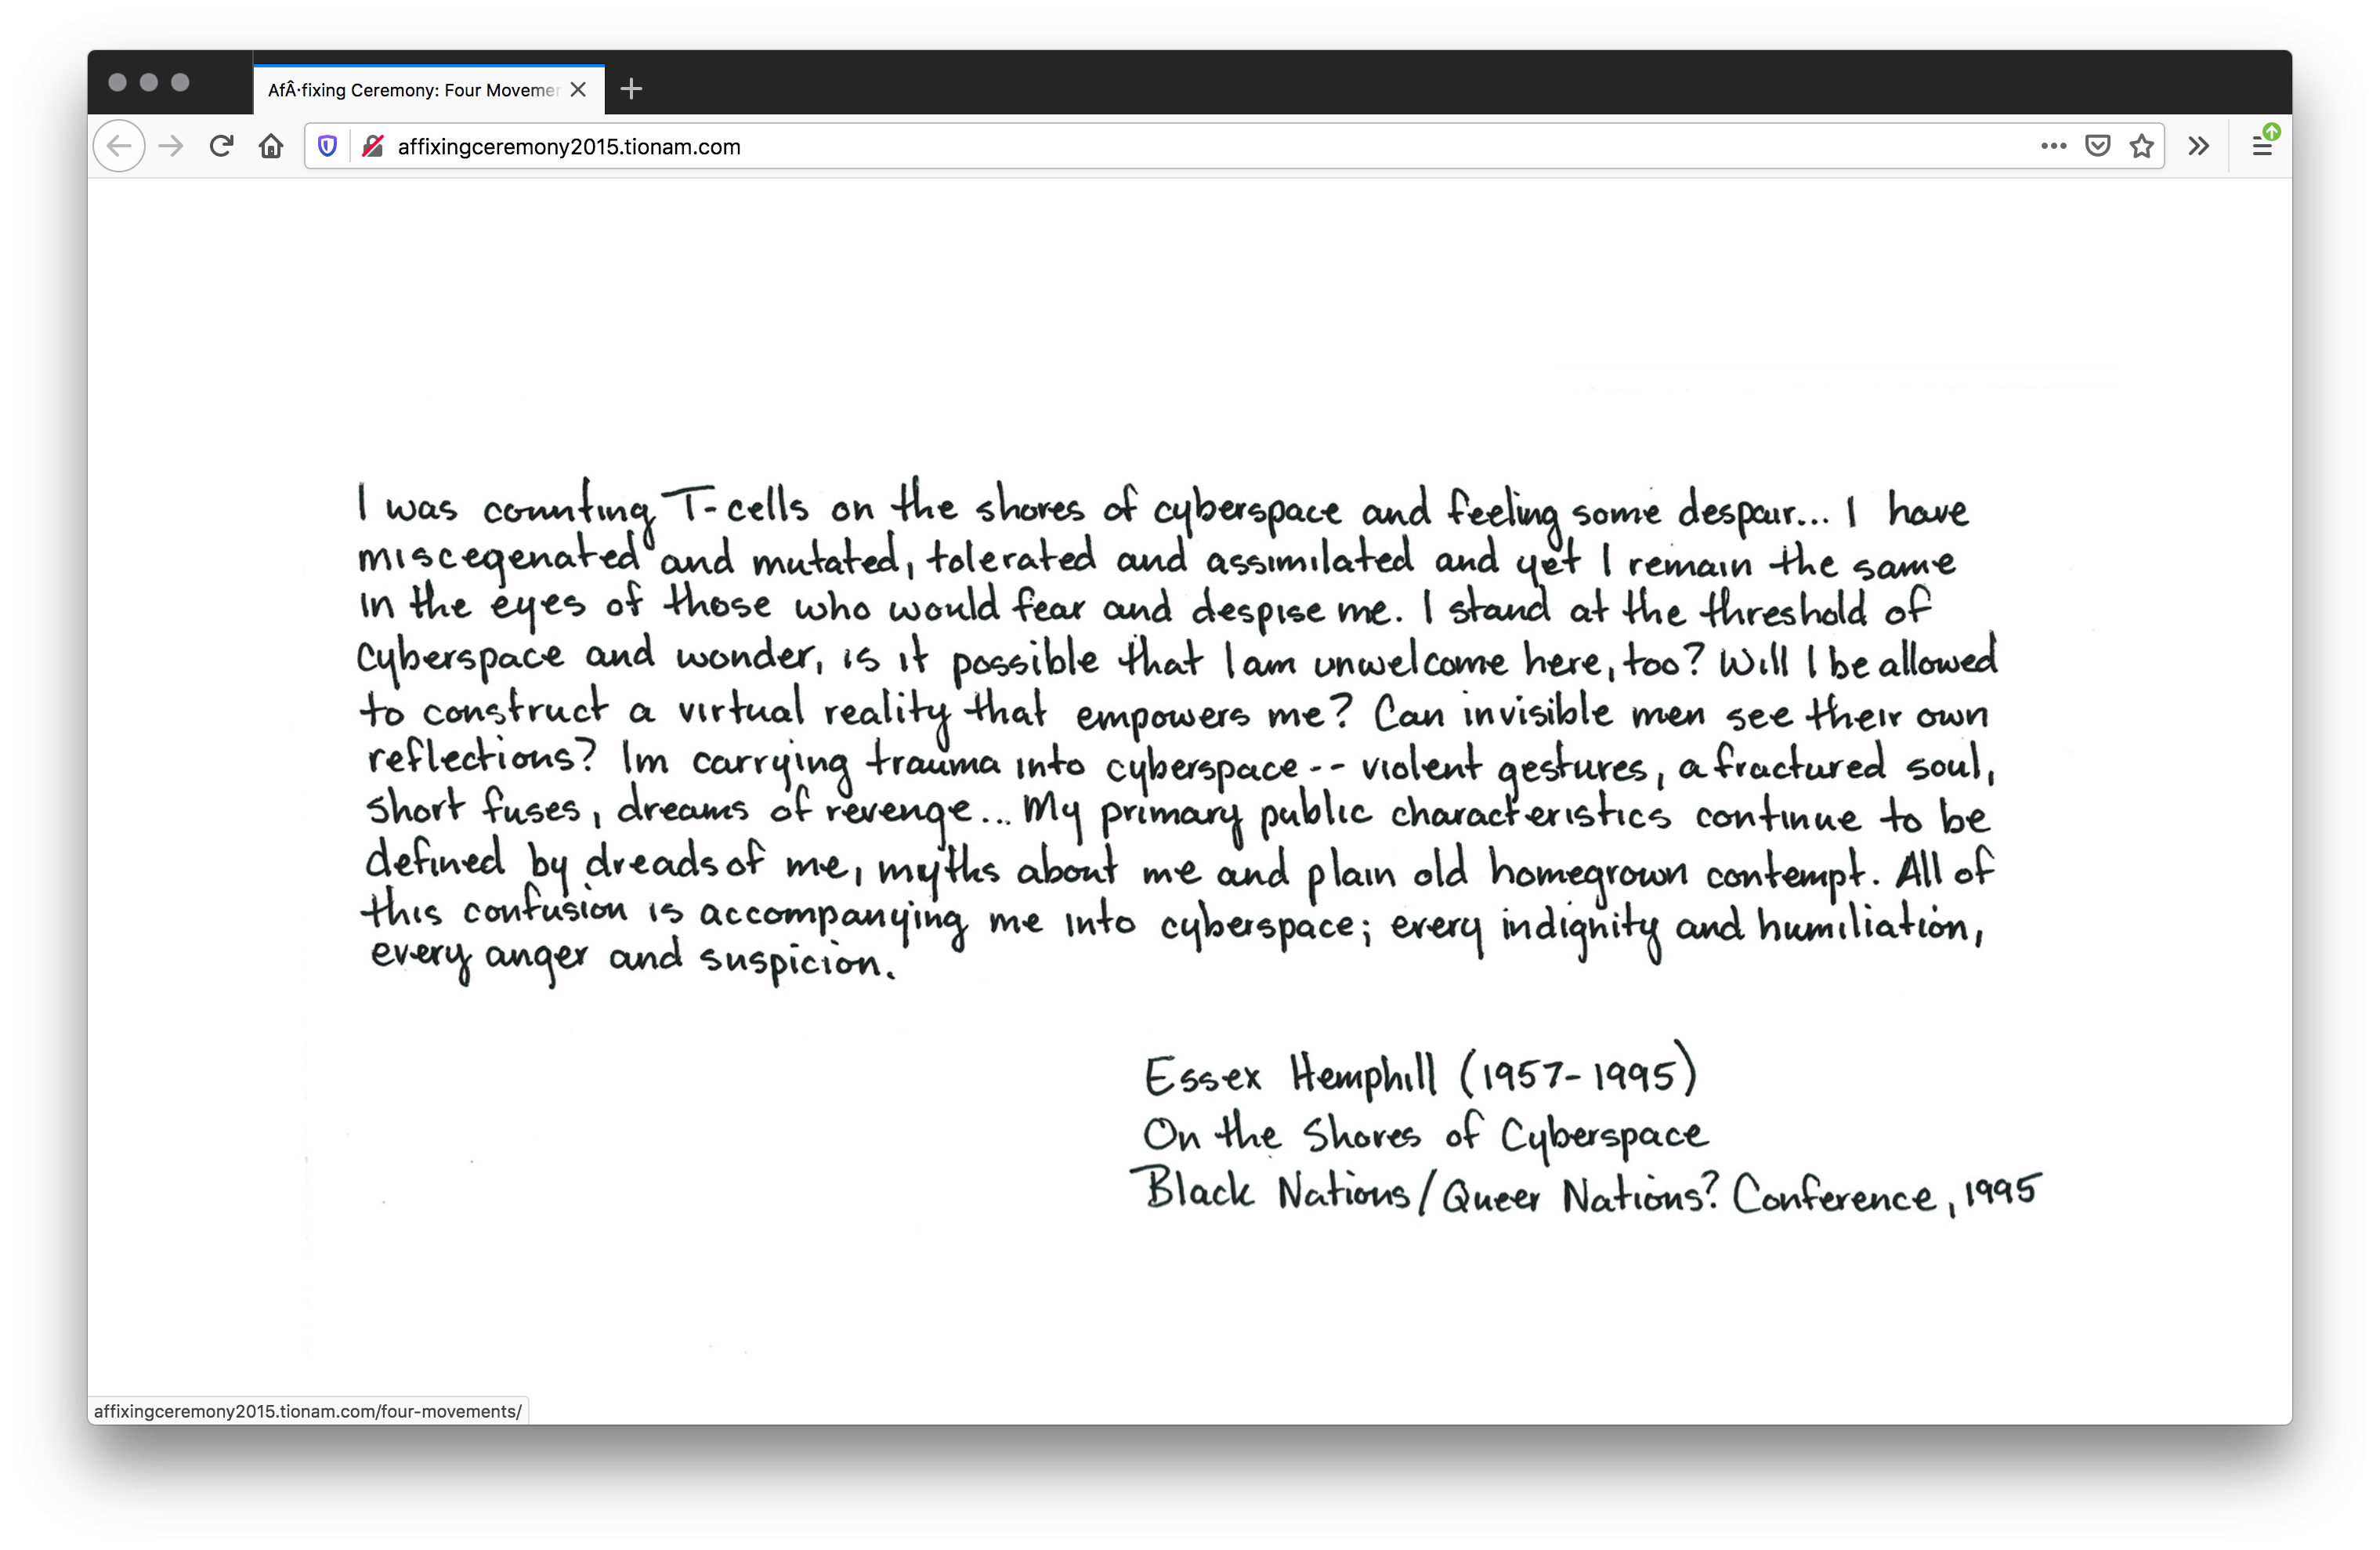 AfÂ·fixing Ceremony: Four Movemen
affixingceremony2015.tionam.com
I was counting T-cells on the shores of cyberspace and feeling some despair... I have
miscegenated and mutated, tolerated and assimilated and yet I remain the same
in the eyes of those who would fear and despise me. I stand at the threshold of
cyberspace and wonder, is it possible that I am unwelcome here, too? Will I be allowed
to construct a virtual reality that empowers me? Can invisible men see their own
reflections? Im carrying trauma into cyberspace-- violent gestures, a fractured soul,
short fuses, dreams of revenge... My primary public characteristics continue to be
defined by dreads of me, myths about me and plain old homegrown contempt. All of
this confusion is accompanying me into cyberspace; every indignity and humiliation,
every anger and suspicion.
Essex Hemphill (1957-1995)
On the Shores of Cyberspace
Black Nations/Queer Nations? Conference, 1995
affixingceremony2015.tionam.com/four-movements/